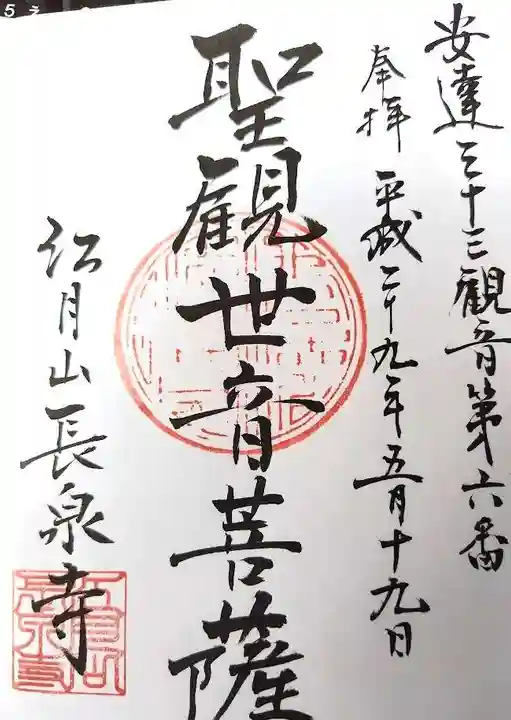 安達三十三観音第六番
奉拝 平成二十九年五月十九日
聖観世音菩薩
紅月山長泉寺